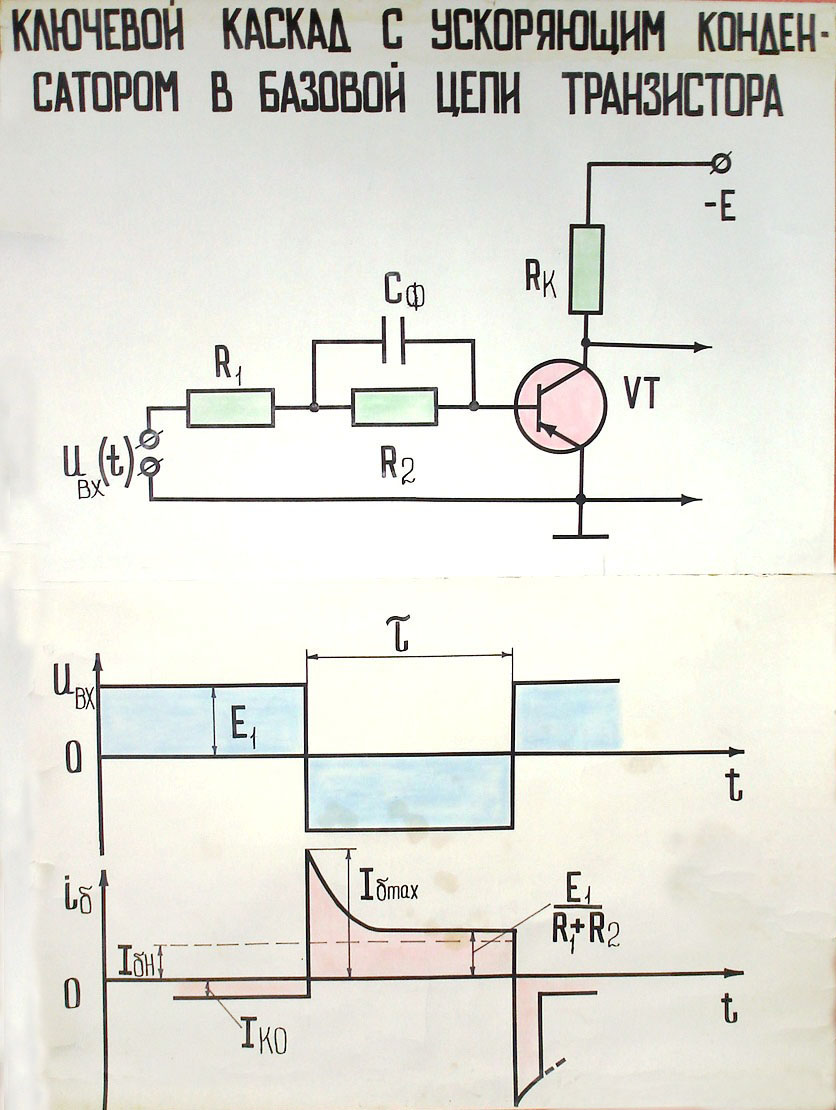 КЛЮЧЕВОЙ КАСКАД С УСКОРЯЮЩИМ КОНДЕН-
САТОРОМ В БАЗОВОЙ ЦЕПИ ТРАНЗИСТОРА
-E
Rк
Cф
R1
VT
Uвх(t)
R2
τ
Uвх
E1
0
t
iб
Iбmax
E1
R1+R2
Iбн
0
t
Iко